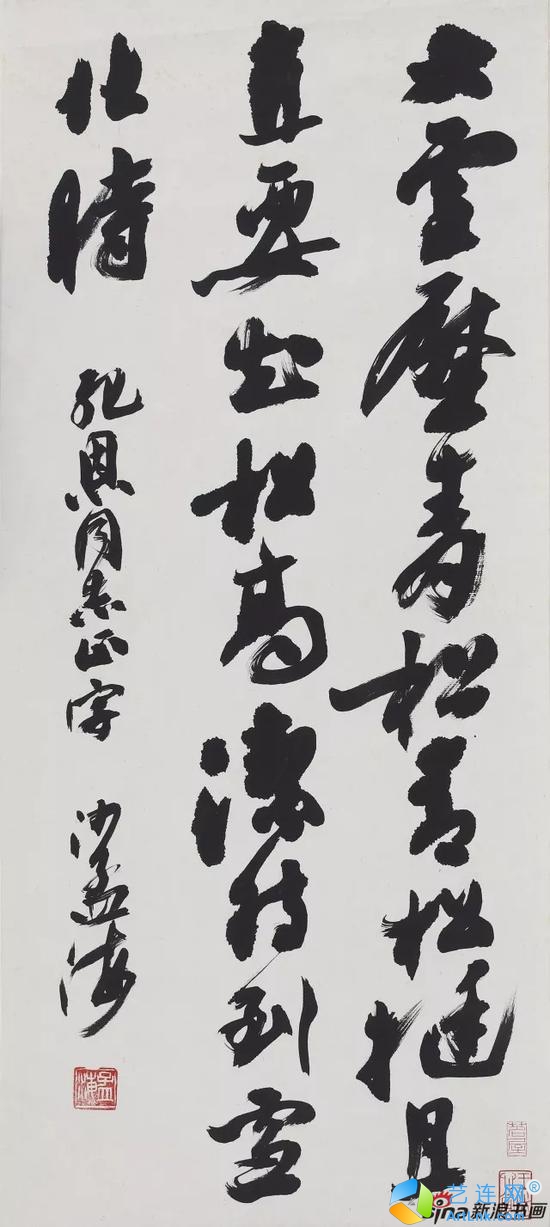 大雪壓青松青松挺且
直要知松高潔待到雪
化時
紀恩同志正字 沙孟海
艺连网®
sina新浪书画